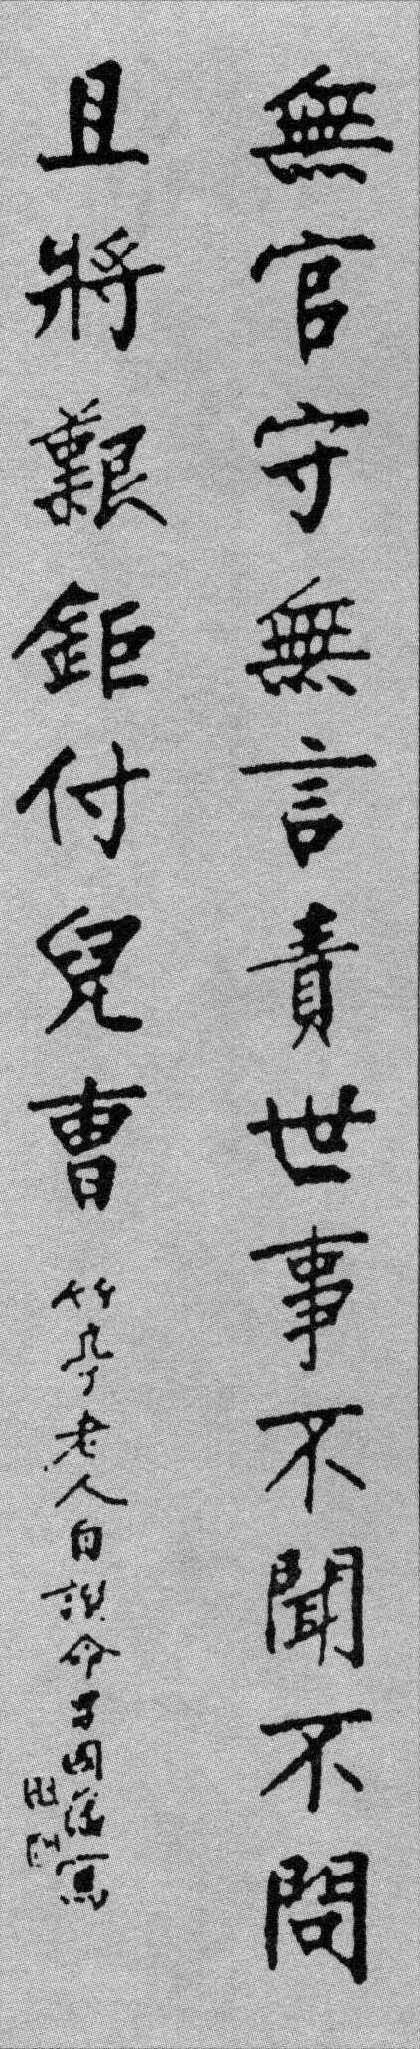 無官守無言責世事不聞不問
且將艱鉅付兒曹
竹亭老人自譔命子國藩寫